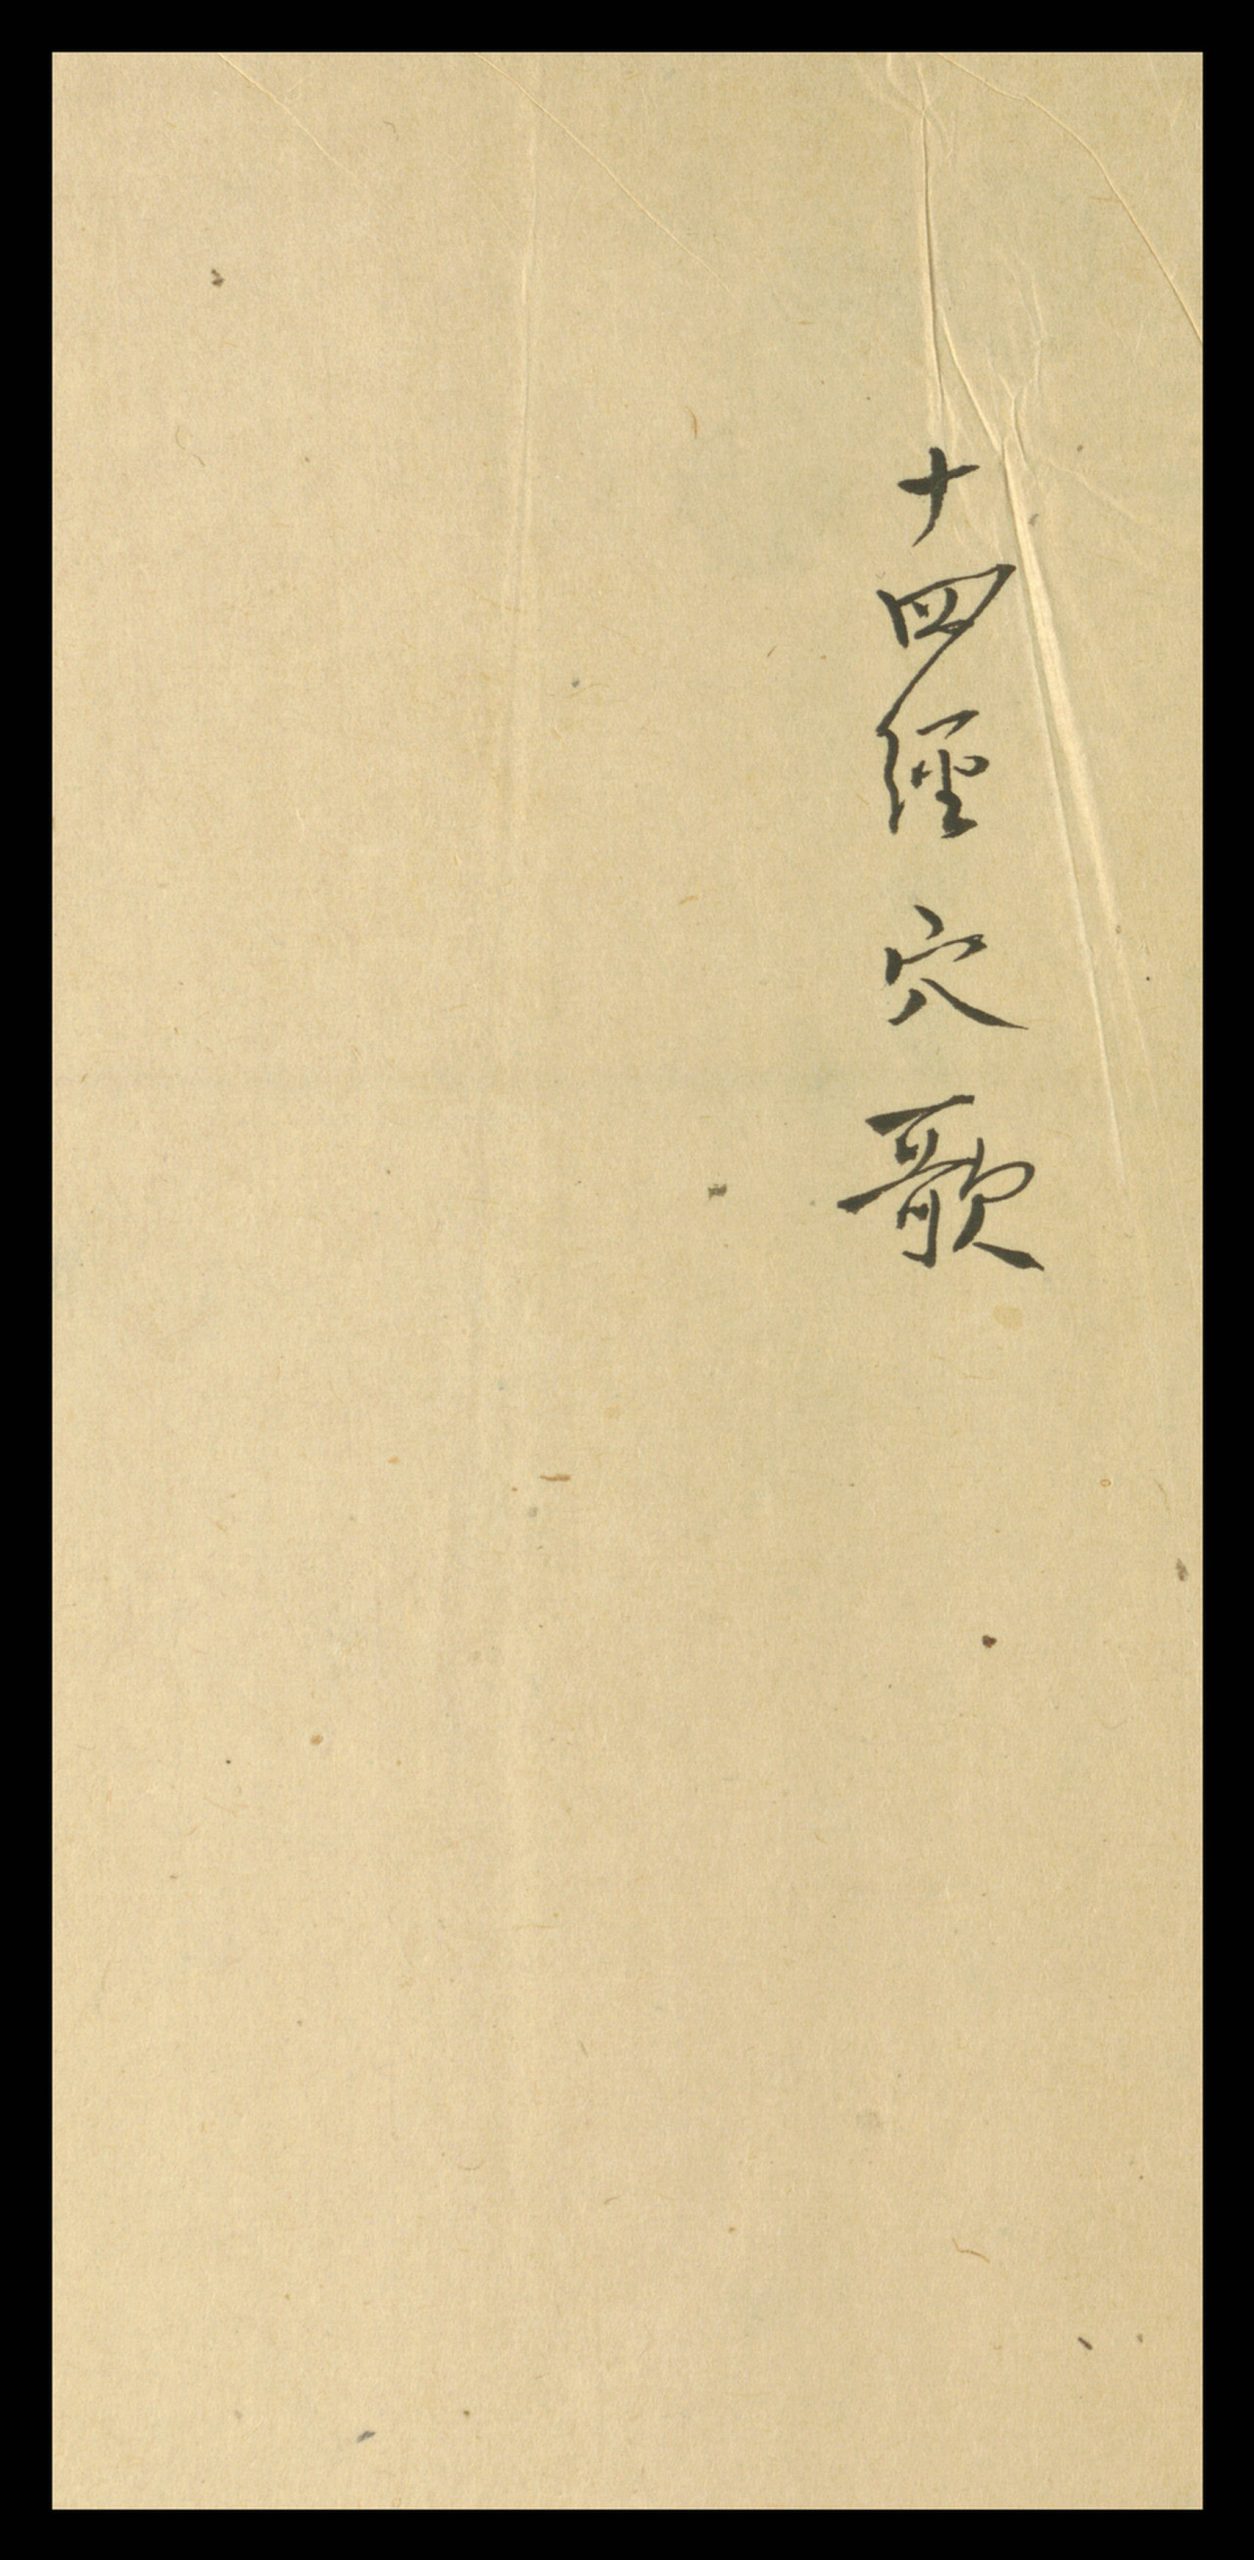 十四經穴歌